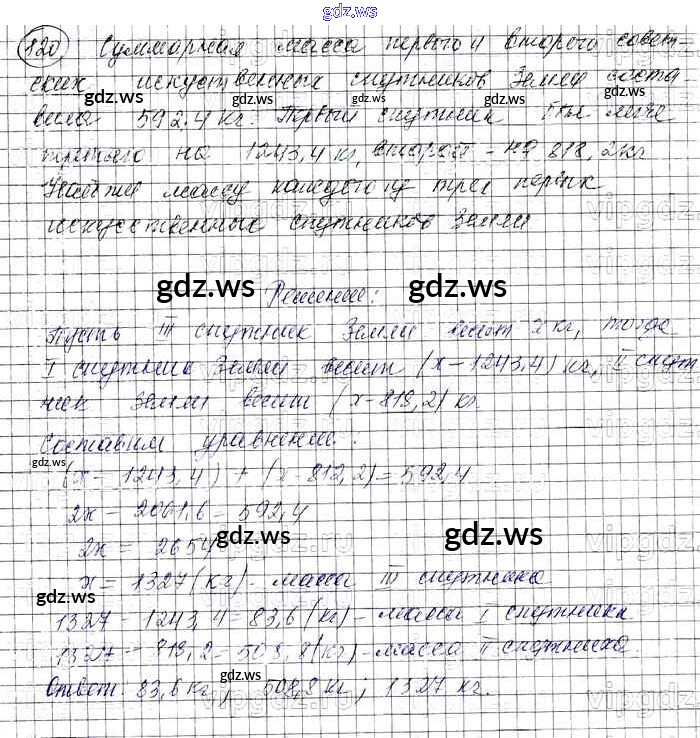 gdz.ws
120 Суммарная масса первого и второго совет-
ских искуственных спутников Земле соста
gdz.ws gdz.ws gdz.ws
вила 592.4 кг. Первый спутник был легче
третьего на 1243,4 кг, второй - на 818,2кг
Найти массу каждого из трех первых
искусственных спутников Земли
vipgdz.
gdz.ws gdz.ws
Решение:
Пусть III спутник Земли весит x кг, тогда
I спутник Земли весит (x-1243,4) кг, II спут
ник Земли весит (x-818,2) кг.
Составим уравнение:
gdz.ws
(x - 1243,4) + (x - 812,2) = 592,4
2x - 2061,6 = 592,4
gdz.ws gdz.ws
2x = 2654
x = 1327 (кг) - масса III спутника
gdz.ws
1327 - 1243,4 = 83,6 (кг) - масса I спутника
1327 - 818,2 = 508,8 (кг) - масса II спутника.
gdz.ws
Ответ: 83,6 кг; 508,8 кг; 1327 кг.